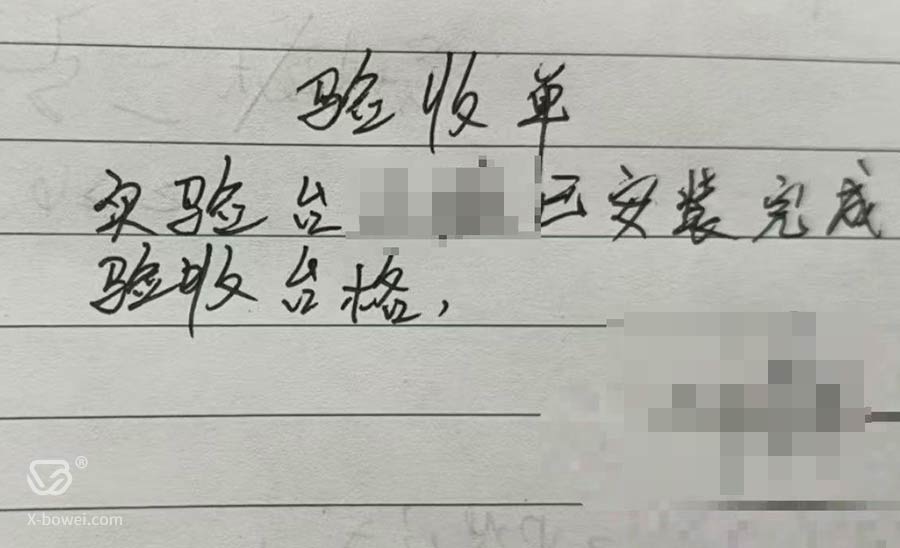 验收单
实验台已安装完成
验收台格,
®
X-bowei.com